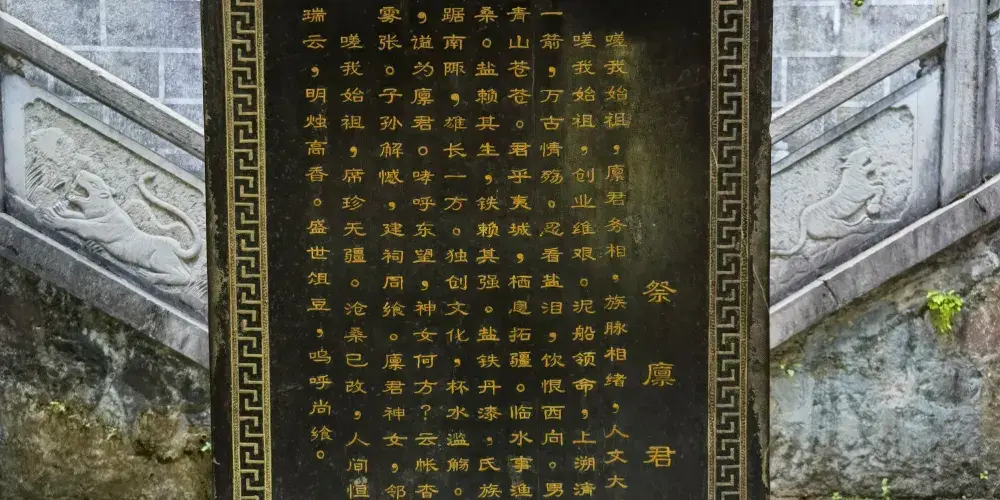 祭廩君
嗟我始祖，廩君务相，族脉相绪，人文大
嗟我始祖，创业维艰。泥船领命，上溯清
一箭，万古情殇。忍看盐泪，饮恨西向。勇
青山苍苍。君乎夷城，栖息拓疆。临水事渔
桑。盐赖其生，铁赖其强。盐铁丹漆，氏族
踞南陬，雄长一方。独创文化，杯水滥觞。
，谥为廩君。哮呼东望，神女何方？云帐杳
雾张。子孙解憾，建祠同飨。廩君神女，邻
嗟我始祖，席珍无疆。沧桑已改，人间恒
瑞云，明烛高香。盛世俎豆，呜呼尚飨。